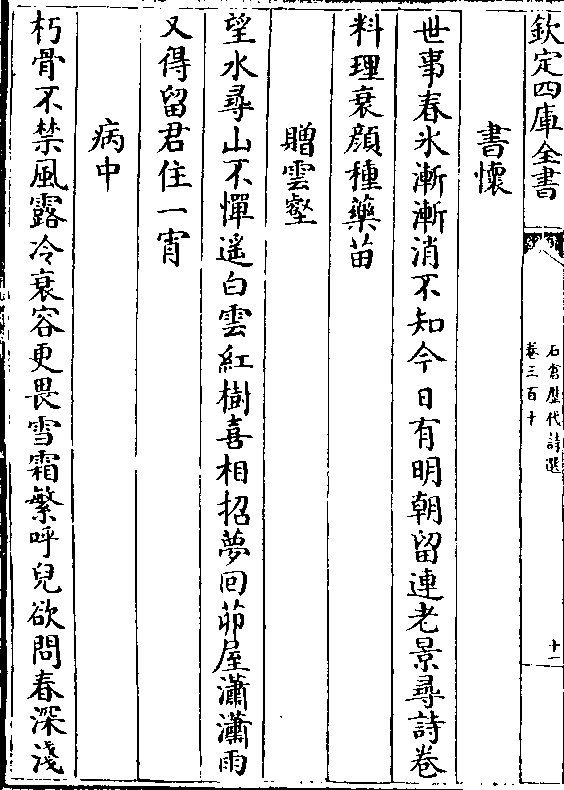 欽定四庫全書
石倉歷代詩選
卷三百十
十一
書懷
世事春氷漸漸消不知今日有明朝留連老景尋詩卷
料理衰顔種藥苗
贈雲壑
望水尋山不憚遥白雲紅樹喜相招夢回茆屋瀟瀟雨
又得留君住一宵
病中
朽骨不禁風露冷衰容更畏雪霜繁呼兒欲問春深淺